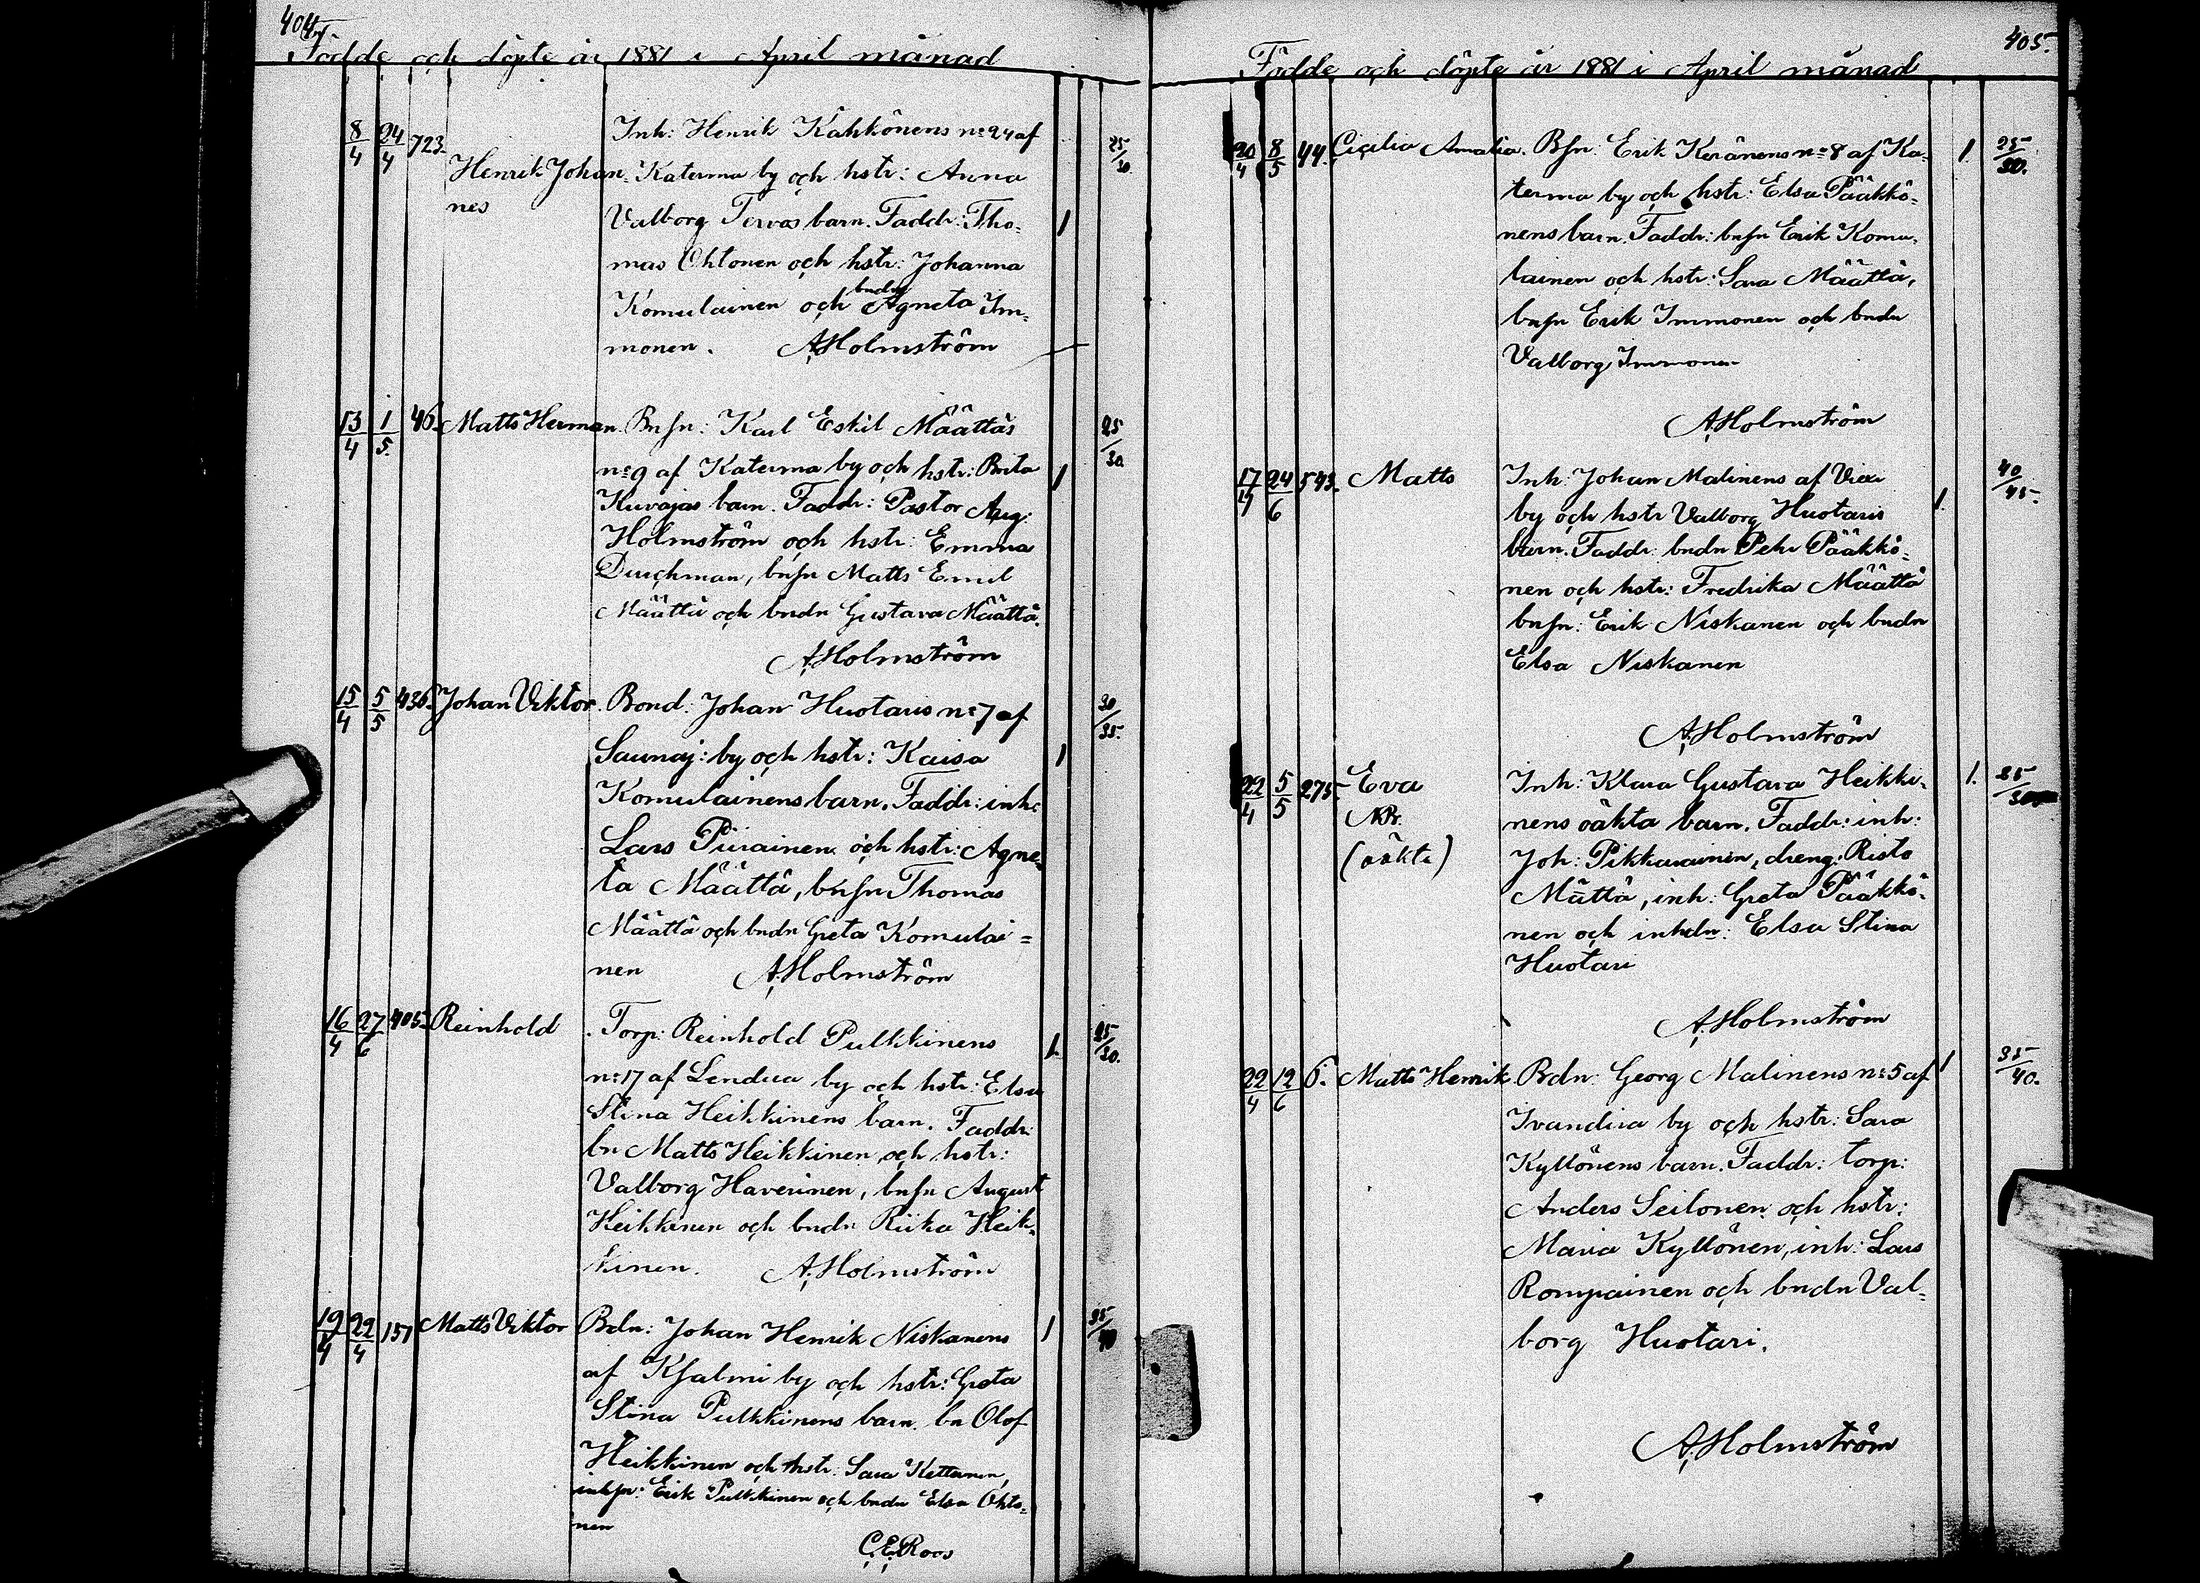 404.
Födde och döpte år 1881 i April månad
8/4 24/4 723. Henrik Johan=
nes
Inh: Henrik Kähkönens no 24 af
Katerma by och hstr: Anna
Valborg Tervos barn. Faddr: Tho=
mas Ohtonen och hstr: Johanna
Komulainen och bndr Agneta Im=
monen. A Holmström
1
25/30
13/4 1/5. 46. Matts Herman. Bnsn: Karl Eskil Määttäs
no 9 af Katerma by och hstr: Brita
Kuvajas barn. Faddr: Pastor Aug:
Holmström och hstr: Emma
Durchman, bnsn Matts Emil
Määttä och bndr Gustava Määttä.
A Holmström
1
25/30.
15/4 5/5 436. Johan Viktor. Bond: Johan Huotaris no 7 af
Saunaj: by och hstr: Kaisa
Komulainens barn. Faddr: inh:
Lars Piirainen och hstr: Agne=
ta Määttä, bnsn Thomas
Määttä och bndr Greta Komulai=
nen A. Holmström
1
30/35.
16/4 27/6 405. Reinhold. Torp: Reinhold Pulkkinens
no 17 af Lendua by och hstr: Elsa
Stina Heikkinens barn. Faddr:
bn Matts Heikkinen och hstr:
Valborg Haverinen, bnsn August
Heikkinen och bndr Riika Heik=
kinen. A. Holmström
1.
25/30.
19/4 22/4 151 Matts Viktor Bdn: Johan Henrik Niskanens
af Ksalmi by och hstr: Greta
Stina Pulkkinens barn. bn Olof
Heikkinen och hstr: Sara Kettunen,
inhsn: Erik Pulkkinen och bndr Elsa Ohto=
nen
C. E. Roos
1
35/40
405.
Födde och döpte år 1881 i April månad
20/4 8/5 44. Cicilia Amalia. Bsn: Erik Keränens no 8 af Ka=
terma by och hstr: Elsa Pääkkö=
nens barn. Faddr: bnsn Erik Komu=
lainen och hstr: Sara Määttä,
bnsn Erik Immonen och bndr
Valborg Immonen
A Holmström
1.
25/30.
17/4 24/6 543. Matts
Inh: Johan Malinens af Viex
by och hstr Valborg Huotaris
barn. Faddr: bndn Pehr Pääkkö=
nen och hstr: Fredrika Määttä
bnsn: Erik Niskanen och bndr
Elsa Niskanen
A. Holmström
1.
40/45.
22/4 5/5 275. Eva
NB.
(oäkta)
Inh: Klara Gustava Heikki=
nens oäkta barn. Faddr: inh:
Joh: Pikkarainen, dreng: Risto
Mättä, inh: Greta Pääkkö=
nen och inhdr: Elsa Stina
Huotari
A. Holmström
1.
22/4 12/6 6. Matts Henrik. Bdn: Georg Malinens no 5 af
Ivandira by och hstr: Sara
Kyllönens barn. Faddr: torp:
Anders Seilonen och hstr:
Maria Kyllönen, inh: Lars
Rompainen och bndr Val=
borg Huotari.
A Holmström
1
35/40.